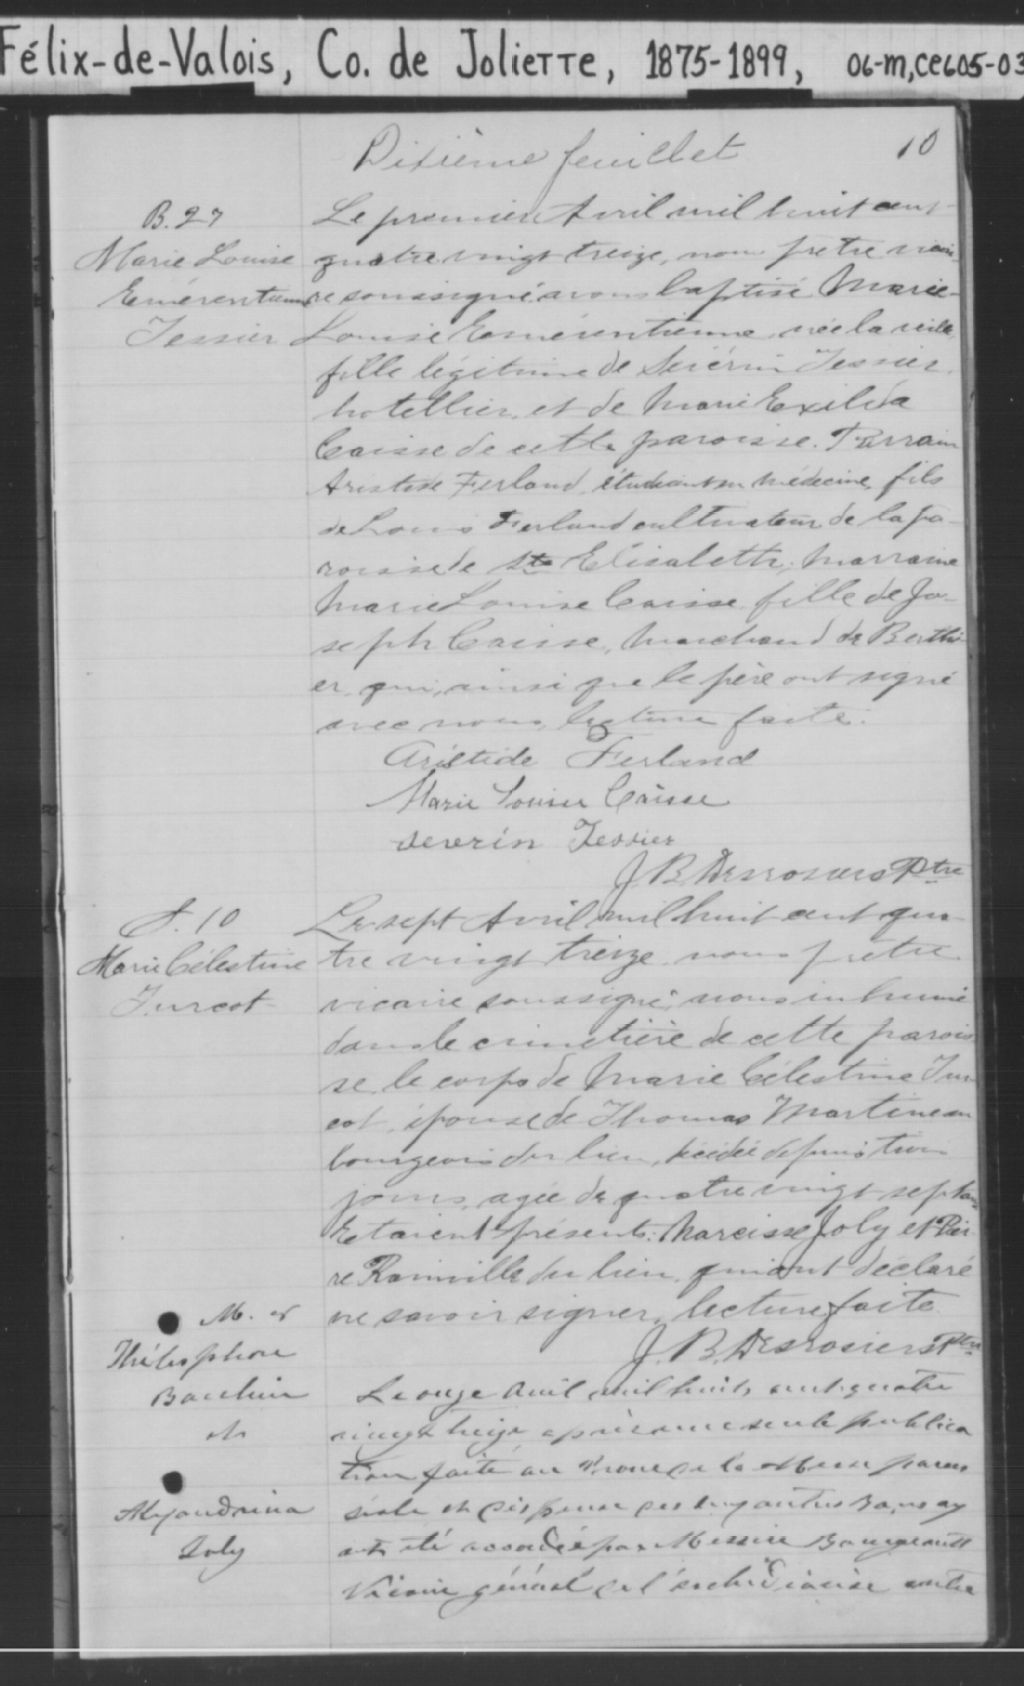 Félix-de-Valois, Co. de Joliette, 1875-1899, 06-M,CE605-03
Dixième feuillet 10
B. 27
Marie Louise
Emérentienne
Tessier
Le premier Avril mil huit cent
quatre vingt treize, nous prêtre vicai-
re soussigné avons baptisé Marie
Louise Emérentienne née la veille
fille légitime de Sévérin Tessier
hotellier, et de Marie Exilida
Caisse de cette paroisse. Parrain
Aristide Ferland étudiant en médecine, fils
de Louis Ferland cultivateur de la pa-
roisse de Ste Elisabeth; marraine
Marie Louise Caisse fille de Jo-
seph Caisse, marchand de Berthi-
er qui, ainsi que le père ont signé
avec nous, lecture faite.
Aristide Ferland
Marie Louise Caisse
Severin Tessier
J B Desrosiers Ptre
S. 10
Marie Célestine
Turcot
Le sept Avril mil huit cent qua-
tre vingt treize nous prêtre
vicaire soussigné, avons inhumé
dans le cimetière de cette parois
se le corps de Marie Célestine Tur-
cot, épouse de Thomas Martineau
bourgeois du lieu, décédée depuis trois
jours, agée de quatre vingt sept ans
Etaient présents: Narcisse Joly et Pier-
re Rainville du lieu, qui ont déclaré
ne savoir signer, lecture faite.
J. B. Desrosiers Ptre
M.
Thélesphore
et
Alexandrina
Joly
Le onze Avril mil huit cent quatre
vingt treize après une seule publica
tion faite au Prone de la Messe parois
siale et dispense des deux autres Bans ay
ant été accordée par Messire
Vicaire général de l'archidiocèse entre